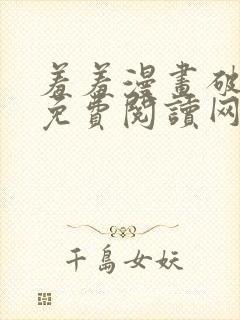 羞羞漫畫破
免費閱讀网
千島女妖